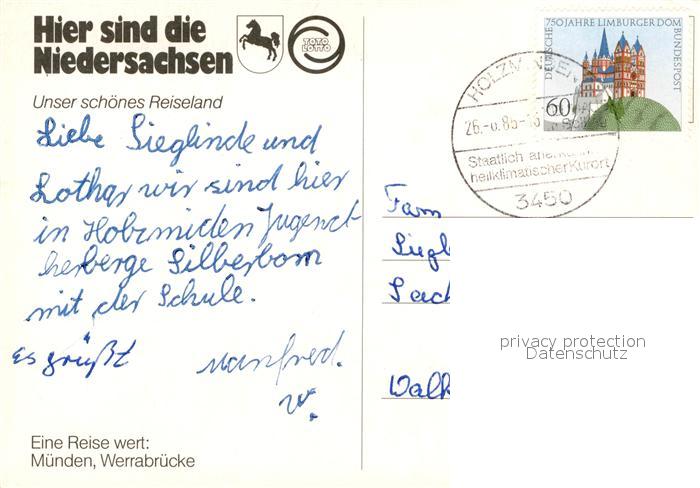 Hier sind die
Niedersachsen
TOTO
LOTTO
Unser schönes Reiseland
Liebe Sieglinde und
Lothar wir sind hier
in Holzmiden Jugend-
herberge Silberborn
mit der Schule.
es grüßt Manfred.
W.
Eine Reise wert:
Münden, Werrabrücke
750 JAHRE LIMBURGER DOM
DEUTSCHE
BUNDESPOST
60
HOLZMINDEN
Staatlich
heilklimatischer Kurort
3450
Fam
Siegl
Walk
privacy protection
Datenschutz